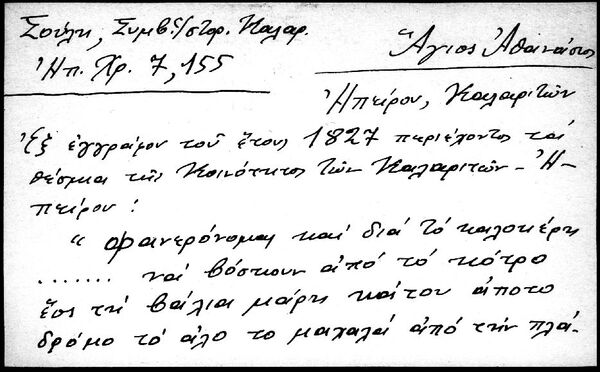 Σούλη, Συμβ. εἰς ἱστορ. Καλαρ.
Ἠπ. Χρ. 7, 155
Ἅγιος Ἀθανάσιος
Ἠπείρου, Καλαριτῶν
Ἐξ ἐγγράφου τοῦ ἔτους 1827 περιέχοντος τά
θέσμια τῆς Κοινότητος τῶν Καλαριτῶν - Ἠ-
πείρου :
" Φανερόνομαι καί διά τό καλοκέρη
....... νά βόσκουν ἀπό τό κότρο
ἕος τή βάλια μάρη κάτου ἀποτο
δρόμο τό άλο το μαχαλά ἀπό τήν πλά-